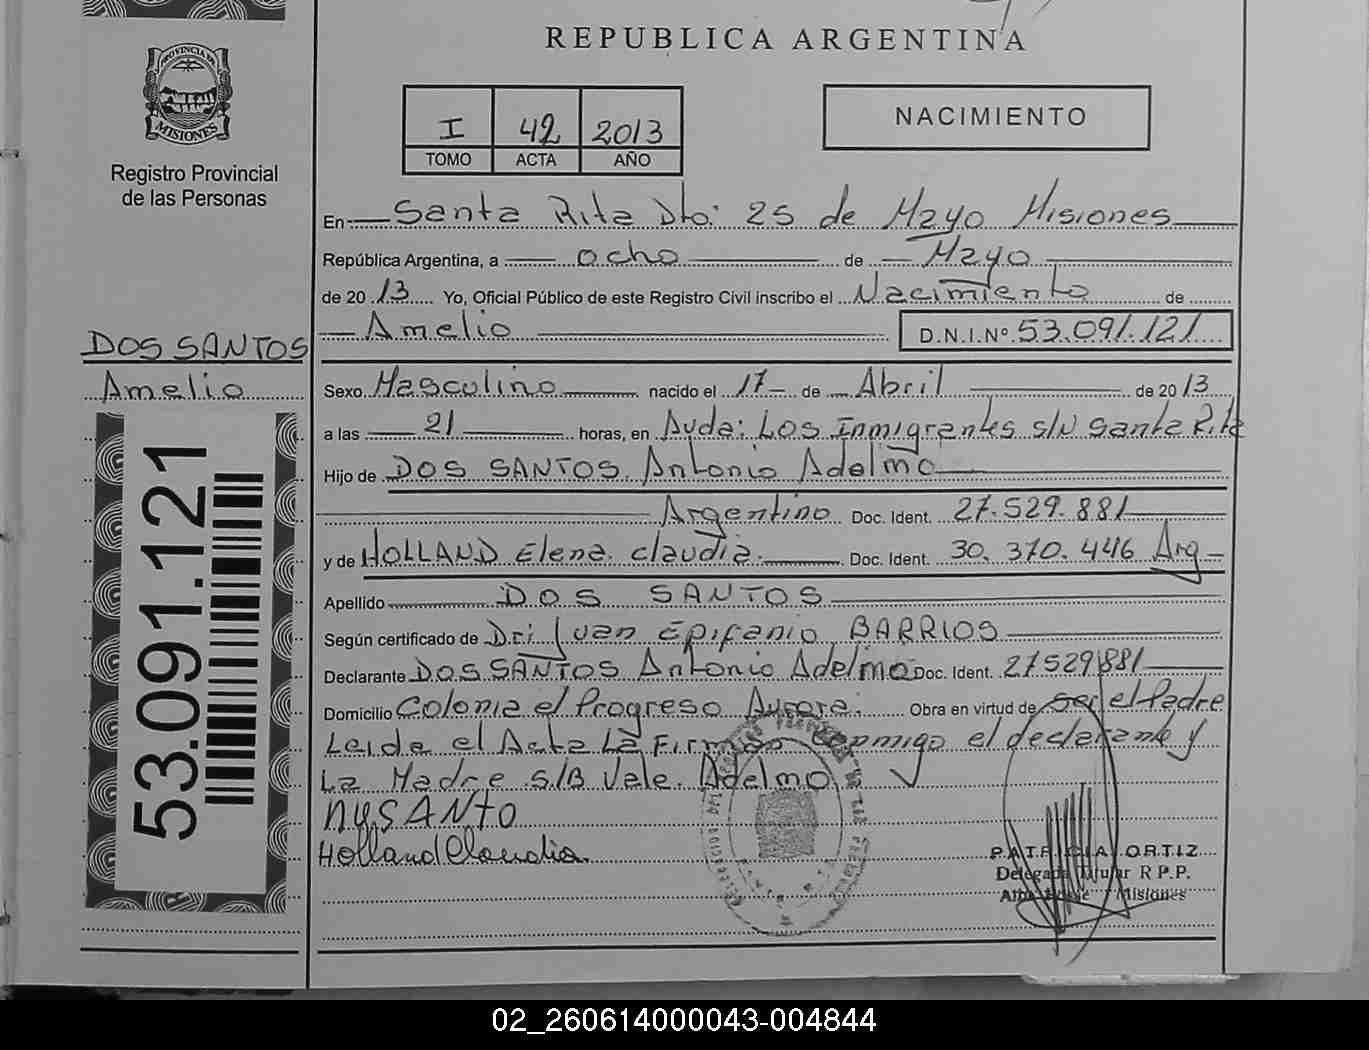 REPUBLICA ARGENTINA
PROVINCIA DE
MISIONES
Registro Provincial
de las Personas
I 42 2013
TOMO ACTA AÑO
NACIMIENTO
En Santa Rita Dto: 25 de Mayo Misiones
República Argentina, a ocho de Mayo
de 20 13 Yo, Oficial Público de este Registro Civil inscribo el Nacimiento de
Amelio D.N.I.Nº 53.091.121
DOS SANTOS
Amelio
53.091.121
Sexo Masculino nacido el 17 de Abril de 20 13
a las 21 horas, en Avda: Los Inmigrantes s/N Santa Rita
Hijo de DOS SANTOS. Antonio Adelmo
Argentino Doc. Ident. 27.529.881
y de HOLLAND Elena. Claudia. Doc. Ident. 30.370.446 Arg
Apellido DOS SANTOS
Según certificado de Dr: Juan Epifanio BARRIOS
Declarante DOS SANTOS Antonio Adelmo Doc. Ident. 27529881
Domicilio Colonia el Progreso Aurora. Obra en virtud de ser el Padre
Leida el Acta La Firman conmigo el declarante y
La Madre S/B Vale. Adelmo
Holland Claudia
PATRICIA ORTIZ
Delegada Titular R P.P.
Misiones
02_260614000043-004844